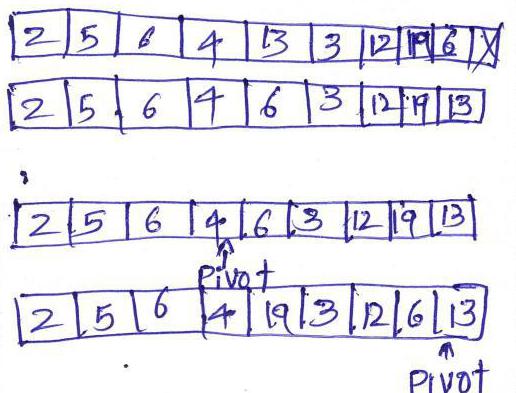 2 5 6 4 13 3 12 19 6 X
2 5 6 4 6 3 12 19 13
2 5 6 4 6 3 12 19 13
Pivot
2 5 6 4 19 3 12 6 13
Pivot